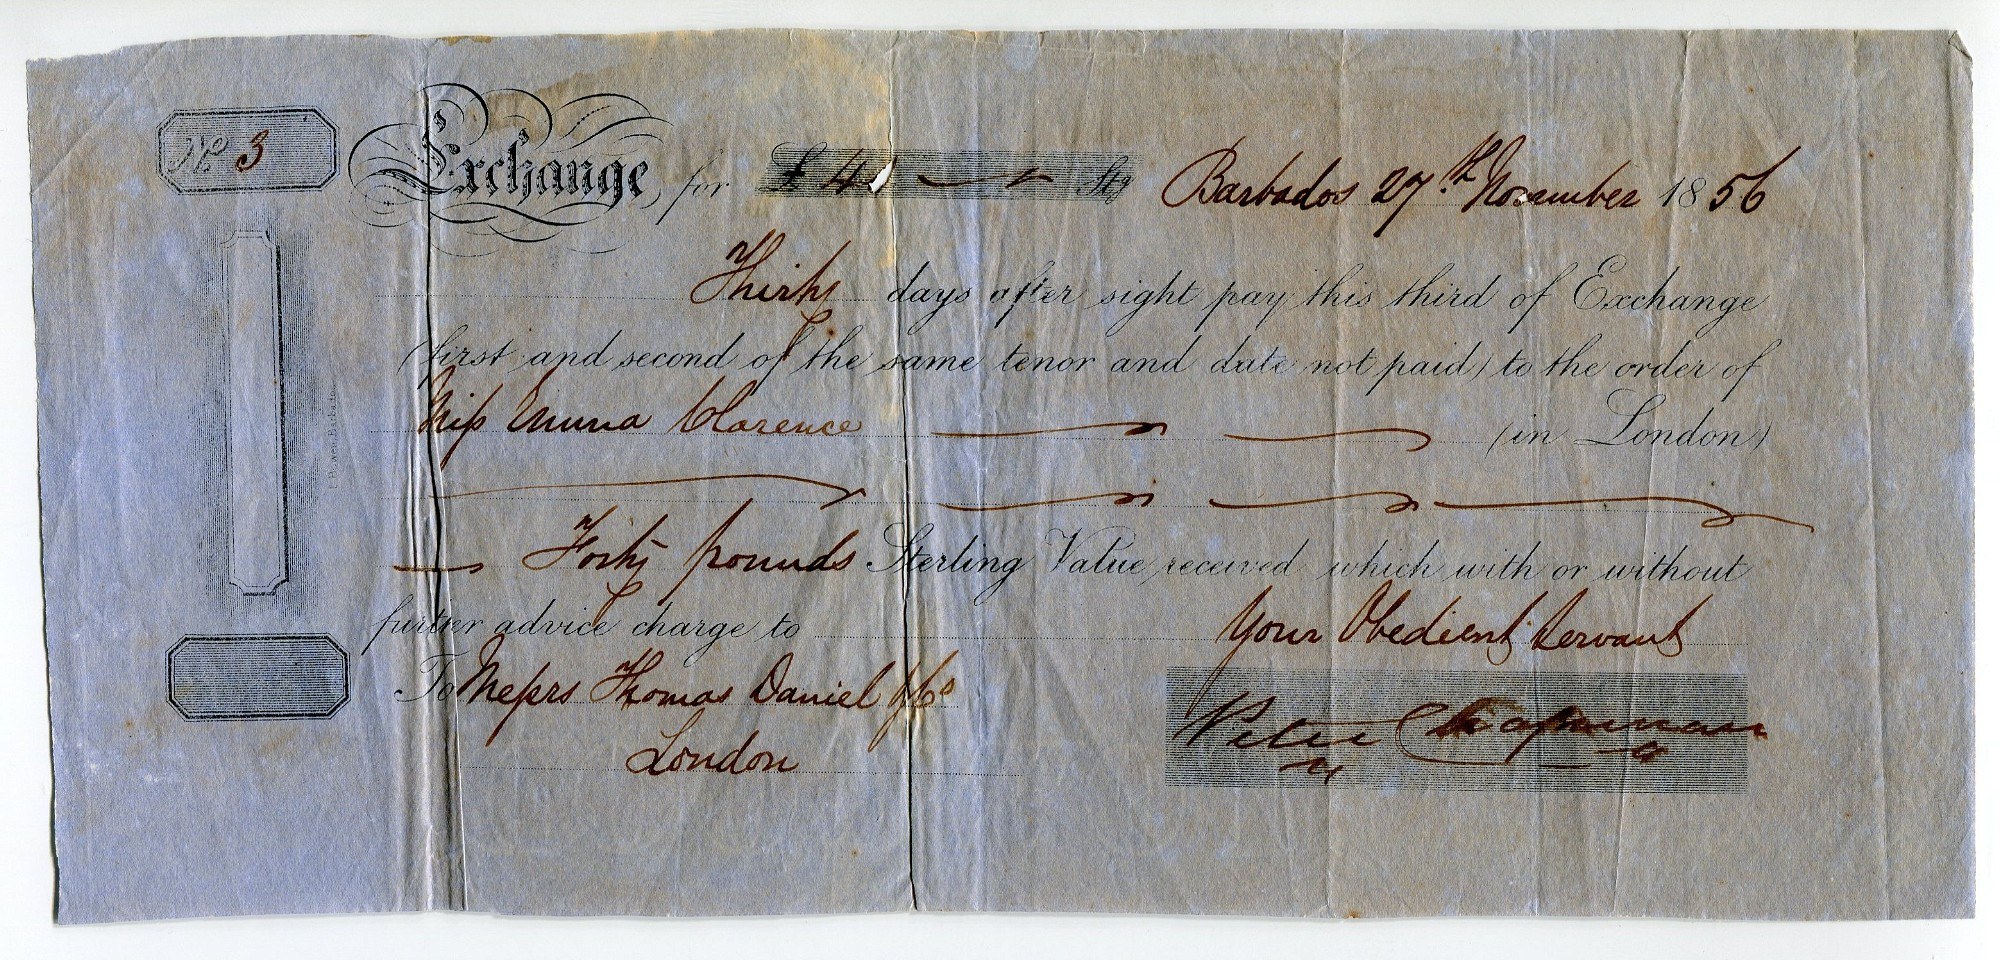 No 3
Exchange, for £ 40 Stg Barbados 27th November 1856
Thirty days after sight pay this third of Exchange
(first and second of the same tenor and date not paid) to the order of
Miss Emma Clarence (in London)
Forty pounds Sterling Value received which with or without
further advice charge to Your Obedient Servant
To Messrs Thomas Daniel & Co Peter Chapman
London
I. Bowen, Barbados